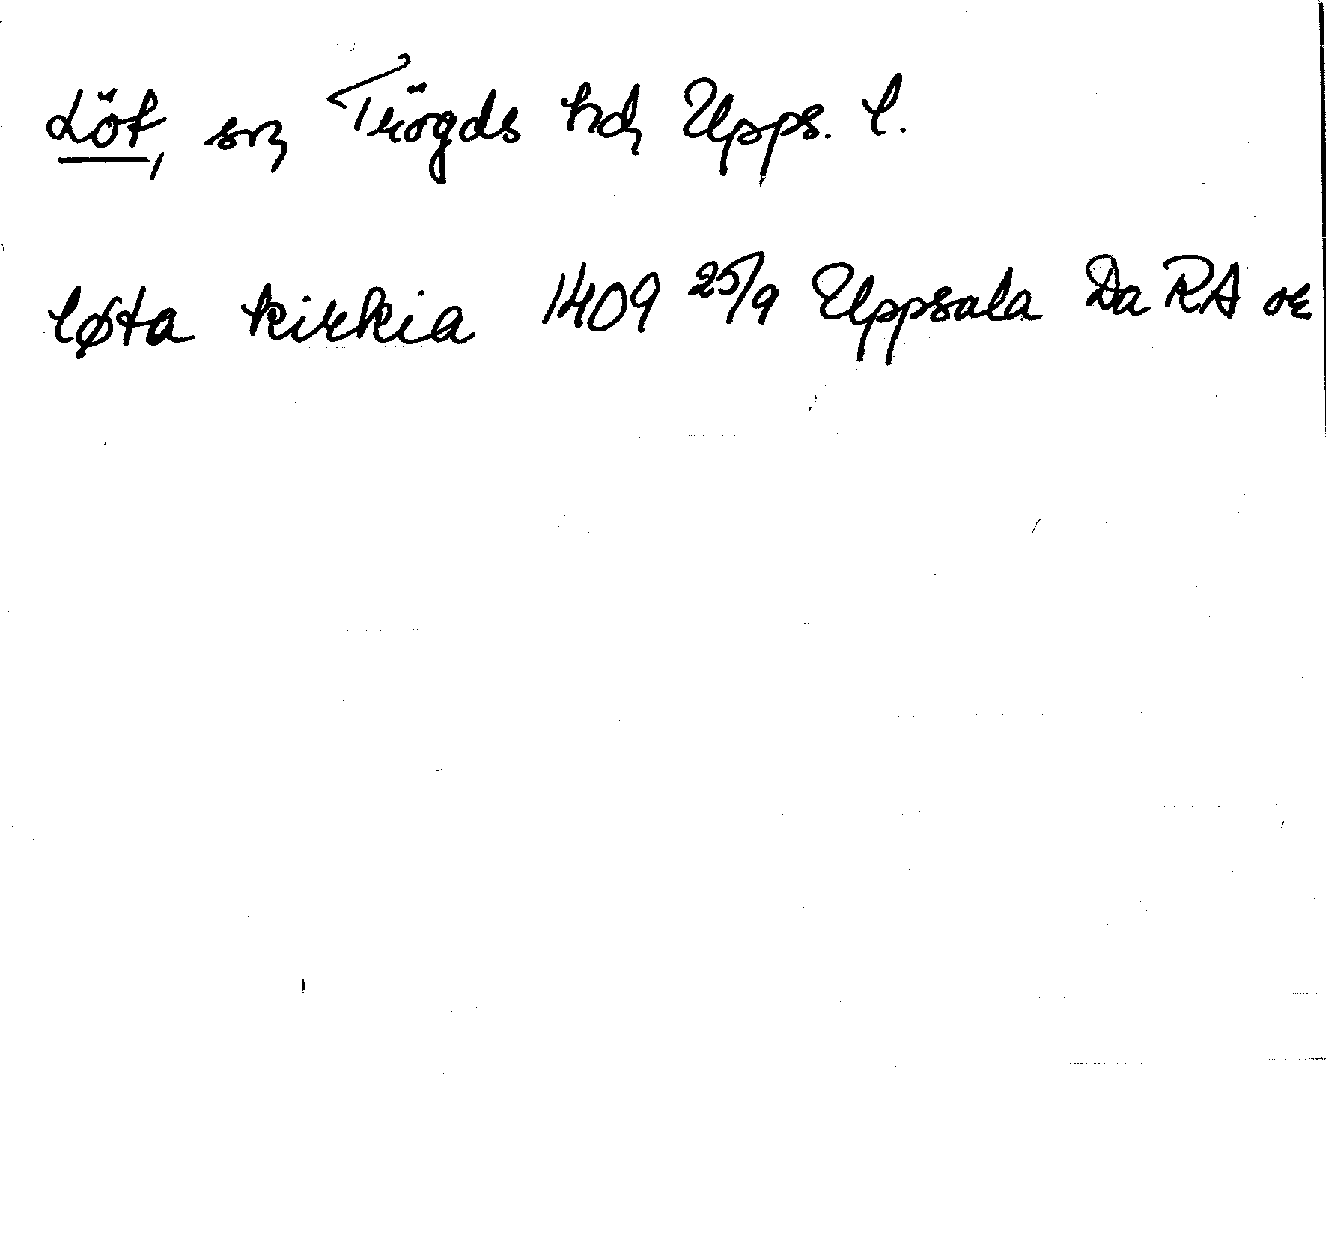 Löt, sn, Trögds hd, Upps. l.
løta kirkia 1409 25/9 Uppsala Da RA or